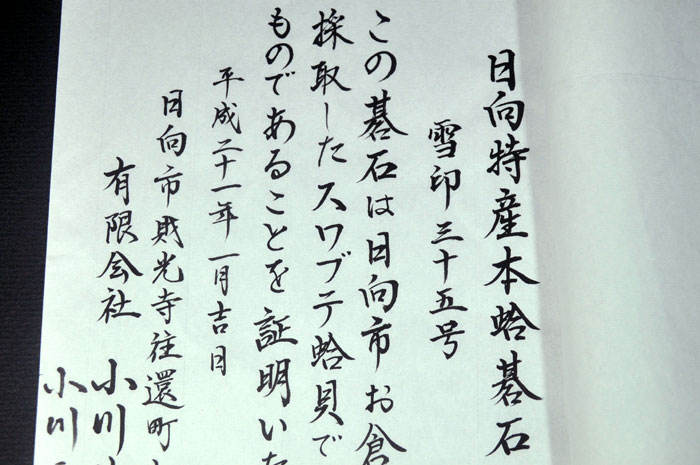 日向特産本蛤碁石
雪印三十五号
この碁石は日向市お倉
採取したスワブテ蛤貝で
ものであることを証明いた
平成二十一年一月吉日
日向市財光寺往還町
有限会社 小川
小川